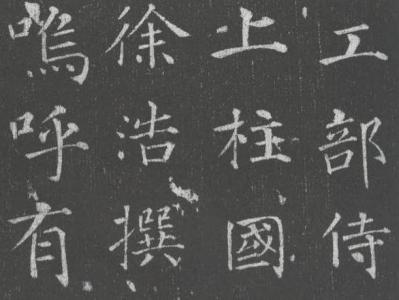 工部侍
上柱國
徐浩撰
嗚呼有